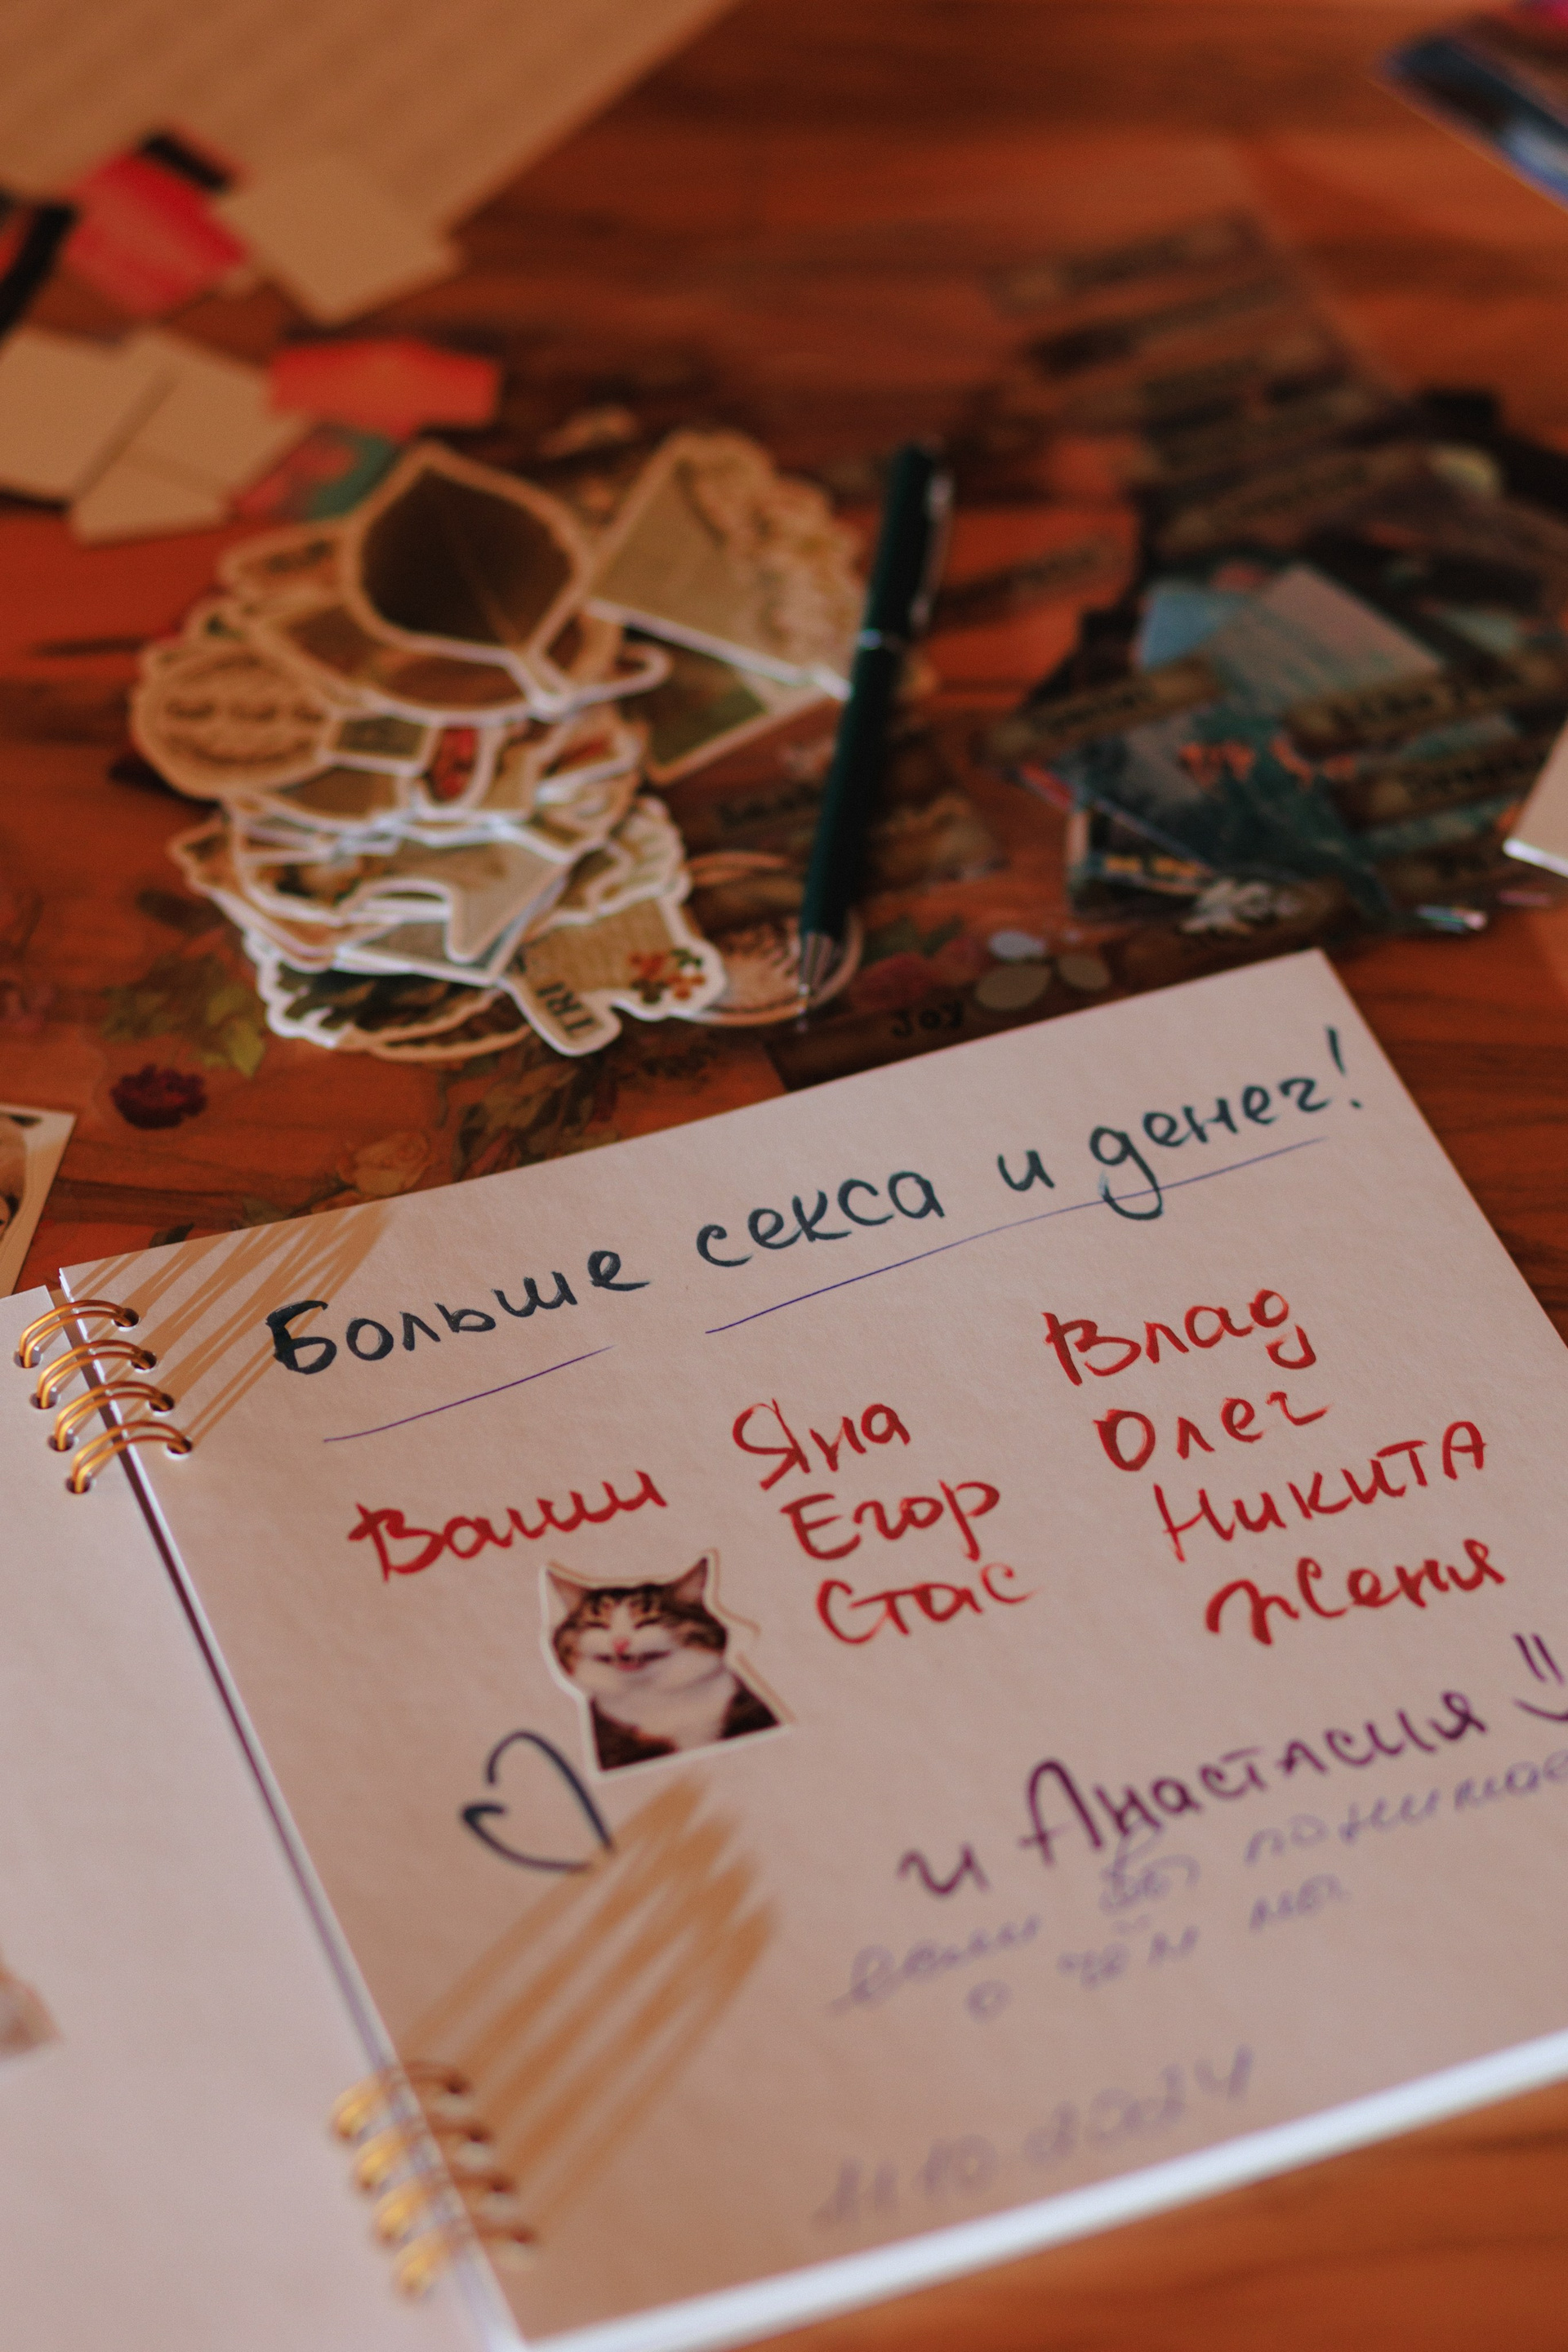 TRI
Joy
Больше секса и денег!
Ваши
Яна
Егор
Стас
Влад
Олег
Никита
Женя
и Анастасия
если вы понимае
о чём мы
11.10.2024